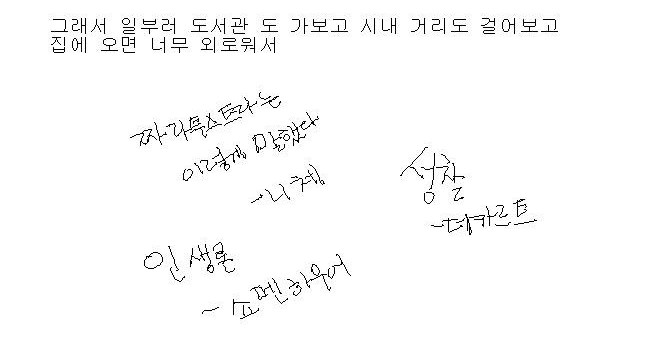 그래서 일부러 도서관 도 가보고 시내 거리도 걸어보고
집에 오면 너무 외로워서
짜라투스트라는
이렇게 말했다
-니체
성찰
-데카르트
인생론
- 쇼펜하우어